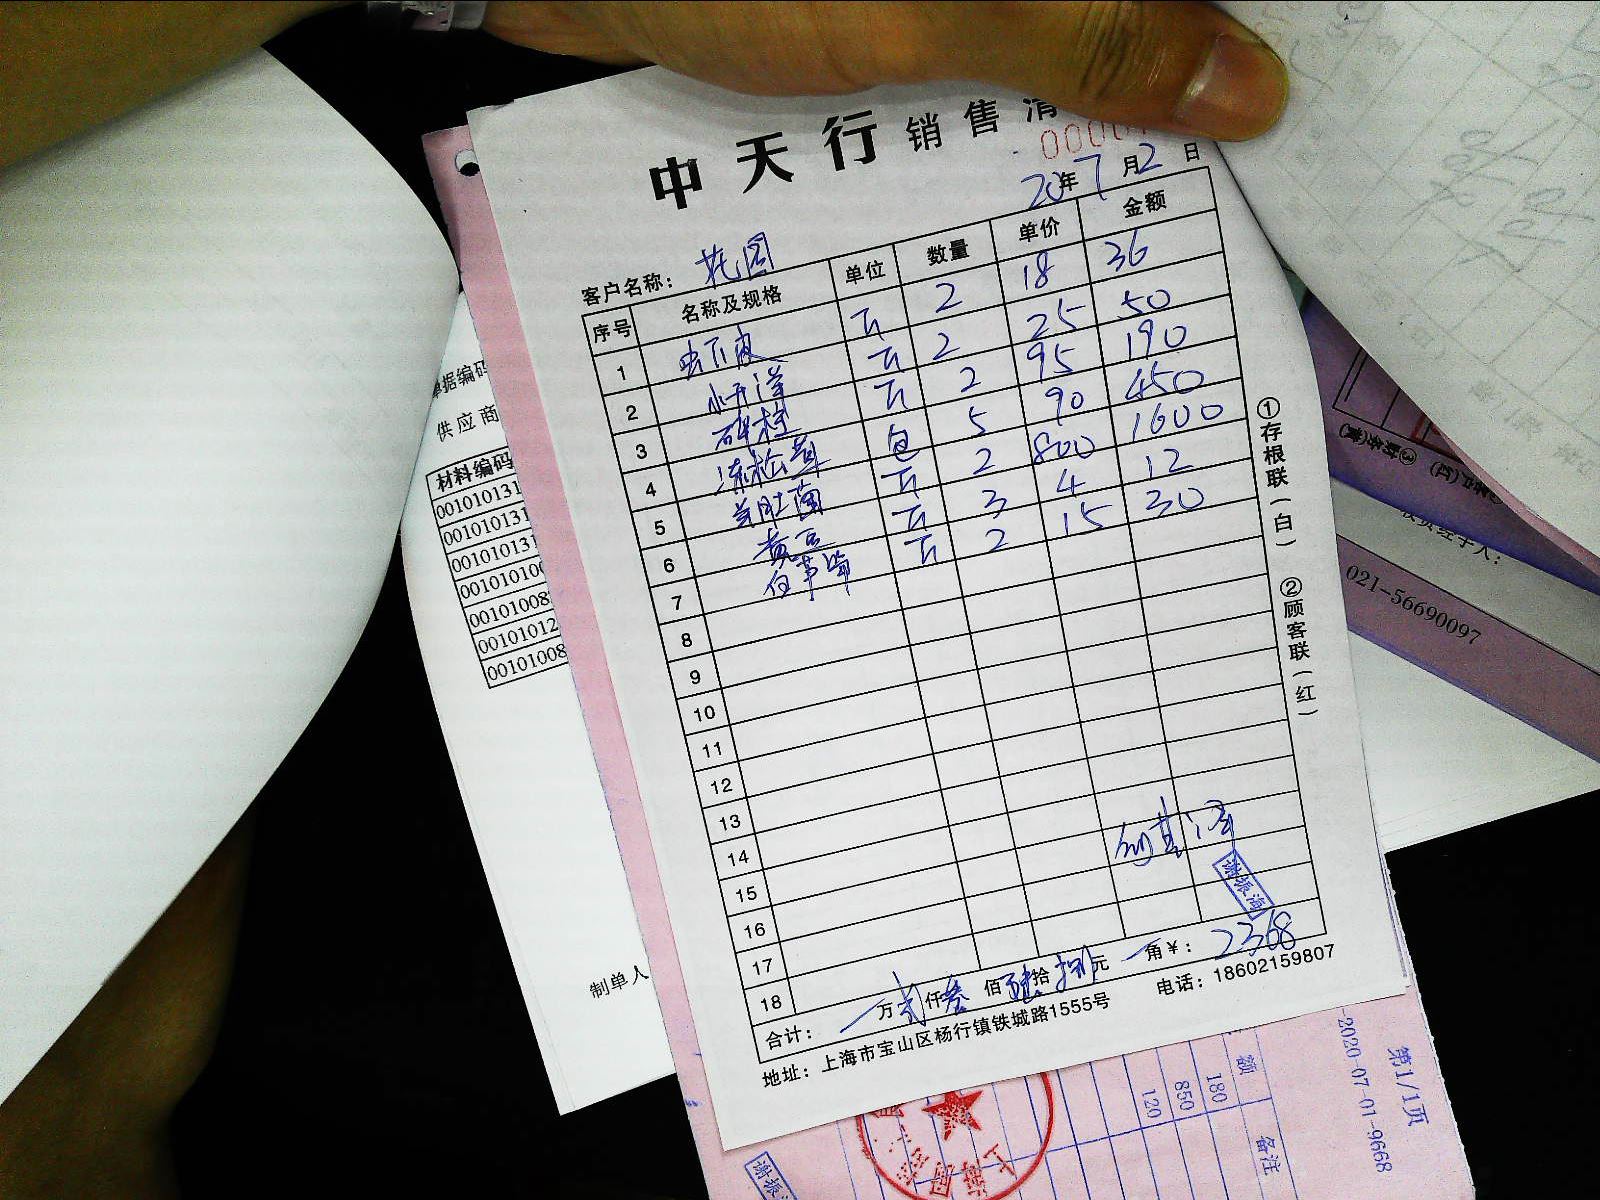 中天行 销售清
0000
20年7月2日
客户名称：花园
序号 名称及规格 单位 数量 单价 金额
1 虾皮 斤 2 18 36
2 开洋 斤 2 25 50
3 斤 2 95 190
4 冻松茸 包 5 90 450
5 羊肚菌 斤 2 800 1600
6 黄豆 斤 3 4 12
7 白芦笋 斤 2 15 30
8
9
10
11
12
13
14
15
16
17
18
谢振海
合计： 万贰仟叁佰陆拾捌元 角¥：2368
地址：上海市宝山区杨行镇铁城路1555号 电话：18602159807
①存根联（白） ②顾客联（红）
单据编码
供应商
材料编码
00101013
00101013
00101013
00101010
00101008
00101012
00101008
制单人
021-56690097
经手人：
第1/1页
-2020-07-01-9668
额 备注
180
850
120
上海
谢振